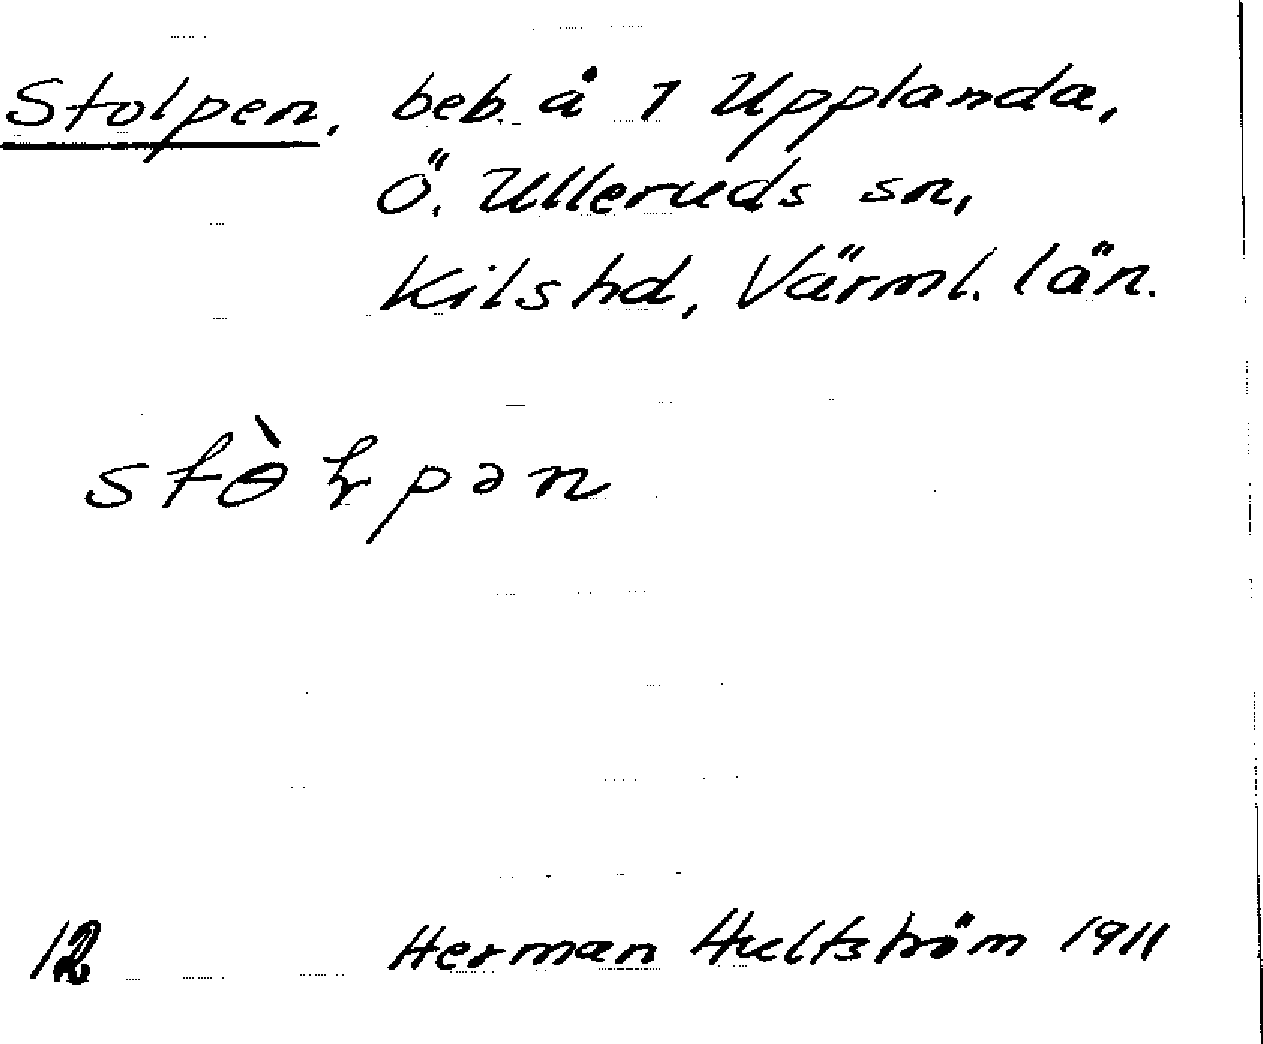 Stolpen, beb. å 1 Upplanda,
Ö. Ulleruds sn,
Kils hd, Värml. län.
stɵ̀ɽpən
12 Herman Hultström 1911